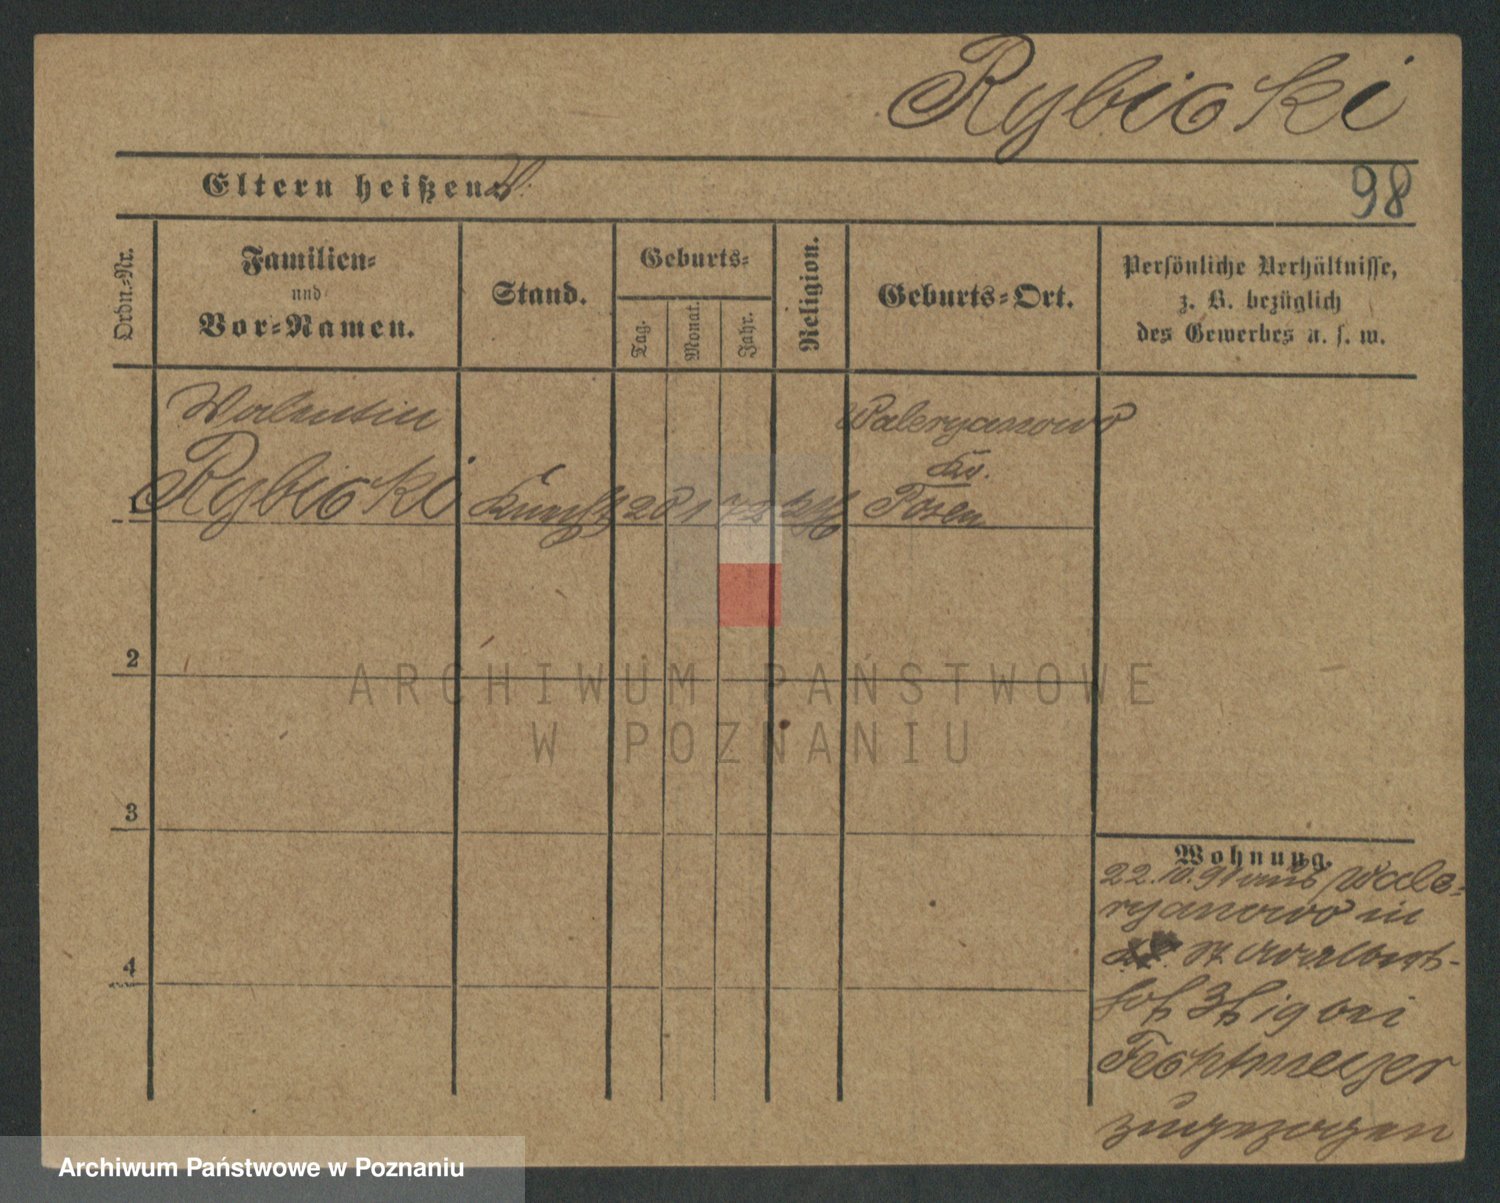 Rybicki
Eltern heißen:
98
Ordn.-Nr.
Familien-
und
Vor-Namen.
Stand.
Geburts-
Tag.
Monat.
Jahr.
Religion.
Geburts-Ort.
Persönliche Verhältnisse,
z. B. bezüglich
des Gewerbes u. s. w.
Valentin
Waleryanowo
Kr.
1 Rybicki 20 1 72 kth Posen
2
ARCHIWUM PAŃSTWOWE
W POZNANIU
3
Wohnung.
22. 10. 91 aus Wale-
ryanowo in
St Adalbert-
bei
Fechtmeyer
zugezogen
4
Archiwum Państwowe w Poznaniu